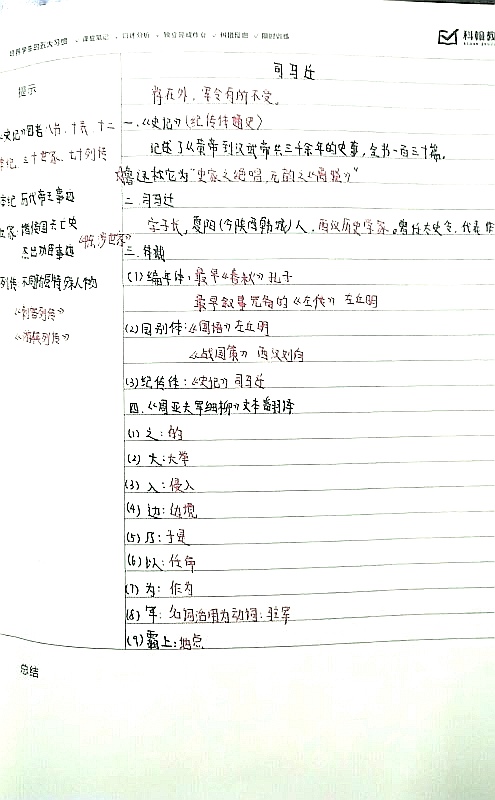 培养学生的五大习惯 课堂笔记 口述分析 独立完成作业 纠错反思 限时训练
科翰教
提示
司马迁
将在外，军令有所不受。
一.《史记》(纪传体通史)
记述了从黄帝到汉武帝共三十余年的史事，全书一百三十篇。
鲁迅称它为"史家之绝唱，无韵之《离骚》"
二.司马迁
字子长，夏阳(今陕西韩城)人，西汉历史学家。曾任太史令，代表作
三.体裁
(1)编年体：最早《春秋》孔子
最早叙事完备的《左传》左丘明
(2)国别体：《国语》左丘明
《战国策》西汉刘向
(3)纪传体：《史记》司马迁
四.《周亚夫军细柳》文本翻译
(1)之：的
(2)大：大举
(3)入：侵入
(4)边：边境
(5)乃：于是
(6)以：任命
(7)为：作为
(8)军：名词活用为动词：驻军
(9)霸上：地点
《史记》包含八书、十表、十二
本纪、三十世家、七十列传
本纪 历代帝王事迹
世家：诸侯国兴亡史
杰出功臣事迹
《陈涉世家》
列传 不同阶层特殊人物
《刺客列传》
《游侠列传》
总结